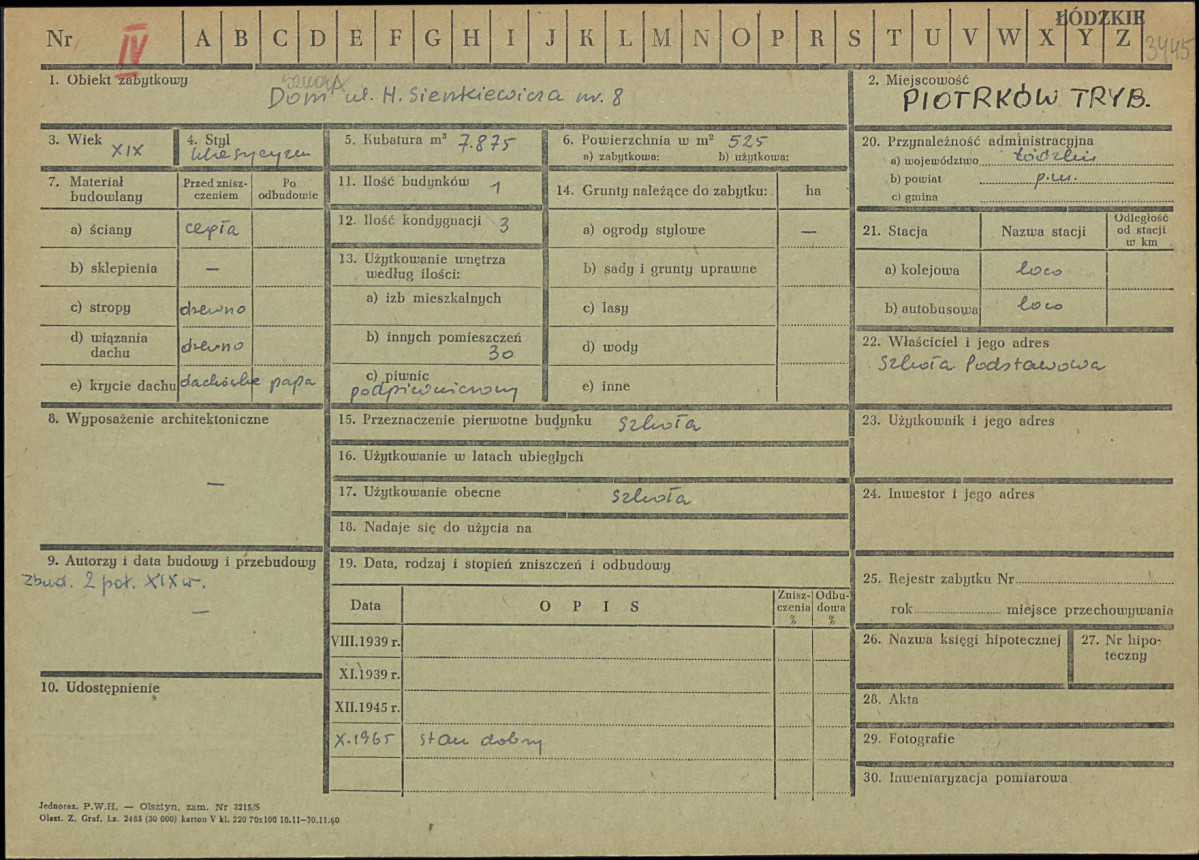 ŁÓDZKIE
Nr IV A B C D E F G H I J K L M N O P R S T U V W X Y Z 3445
1. Obiekt zabytkowy
szkoła
Dom ul. H. Sienkiewicza nr. 8
2. Miejscowość
PIOTRKÓW TRYB.
3. Wiek XIX
4. Styl klasycyzm
5. Kubatura m³ 7.875
6. Powierzchnia w m² 525
a) zabytkowa: b) użytkowa:
20. Przynależność administracyjna
a) województwo łódzkie
b) powiat p.m.
c) gmina
7. Materiał budowlany
Przed zniszczeniem
Po odbudowie
a) ściany cegła
b) sklepienia —
c) stropy drewno
d) wiązania dachu drewno
e) krycie dachu dachówka papa
11. Ilość budynków 1
12. Ilość kondygnacji 3
13. Użytkowanie wnętrza według ilości:
a) izb mieszkalnych
b) innych pomieszczeń
30
c) piwnic
podpiwniczony
14. Grunty należące do zabytku: ha
a) ogrody stylowe —
b) sady i grunty uprawne
c) lasy
d) wody
e) inne
21. Stacja Nazwa stacji Odległość od stacji w km
a) kolejowa loco
b) autobusowa loco
22. Właściciel i jego adres
Szkoła Podstawowa
8. Wyposażenie architektoniczne
—
15. Przeznaczenie pierwotne budynku szkoła
16. Użytkowanie w latach ubiegłych
17. Użytkowanie obecne szkoła
18. Nadaje się do użycia na
23. Użytkownik i jego adres
24. Inwestor i jego adres
9. Autorzy i data budowy i przebudowy
Zbud. 2 poł. XIX w.
—
10. Udostępnienie
19. Data, rodzaj i stopień zniszczeń i odbudowy
Data OPIS Zniszczenia % Odbudowa %
VIII.1939 r.
XI.1939 r.
XII.1945 r.
X.1965 stan dobry
25. Rejestr zabytku Nr
rok miejsce przechowywania
26. Nazwa księgi hipotecznej
27. Nr hipoteczny
28. Akta
29. Fotografie
30. Inwentaryzacja pomiarowa
Jednoraz. P.W.H. — Olsztyn, zam. Nr 3215/S
Olszt. Z. Graf. Lz. 2465 (30 000) karton V kl. 220 70x100 10.11—30.11.60